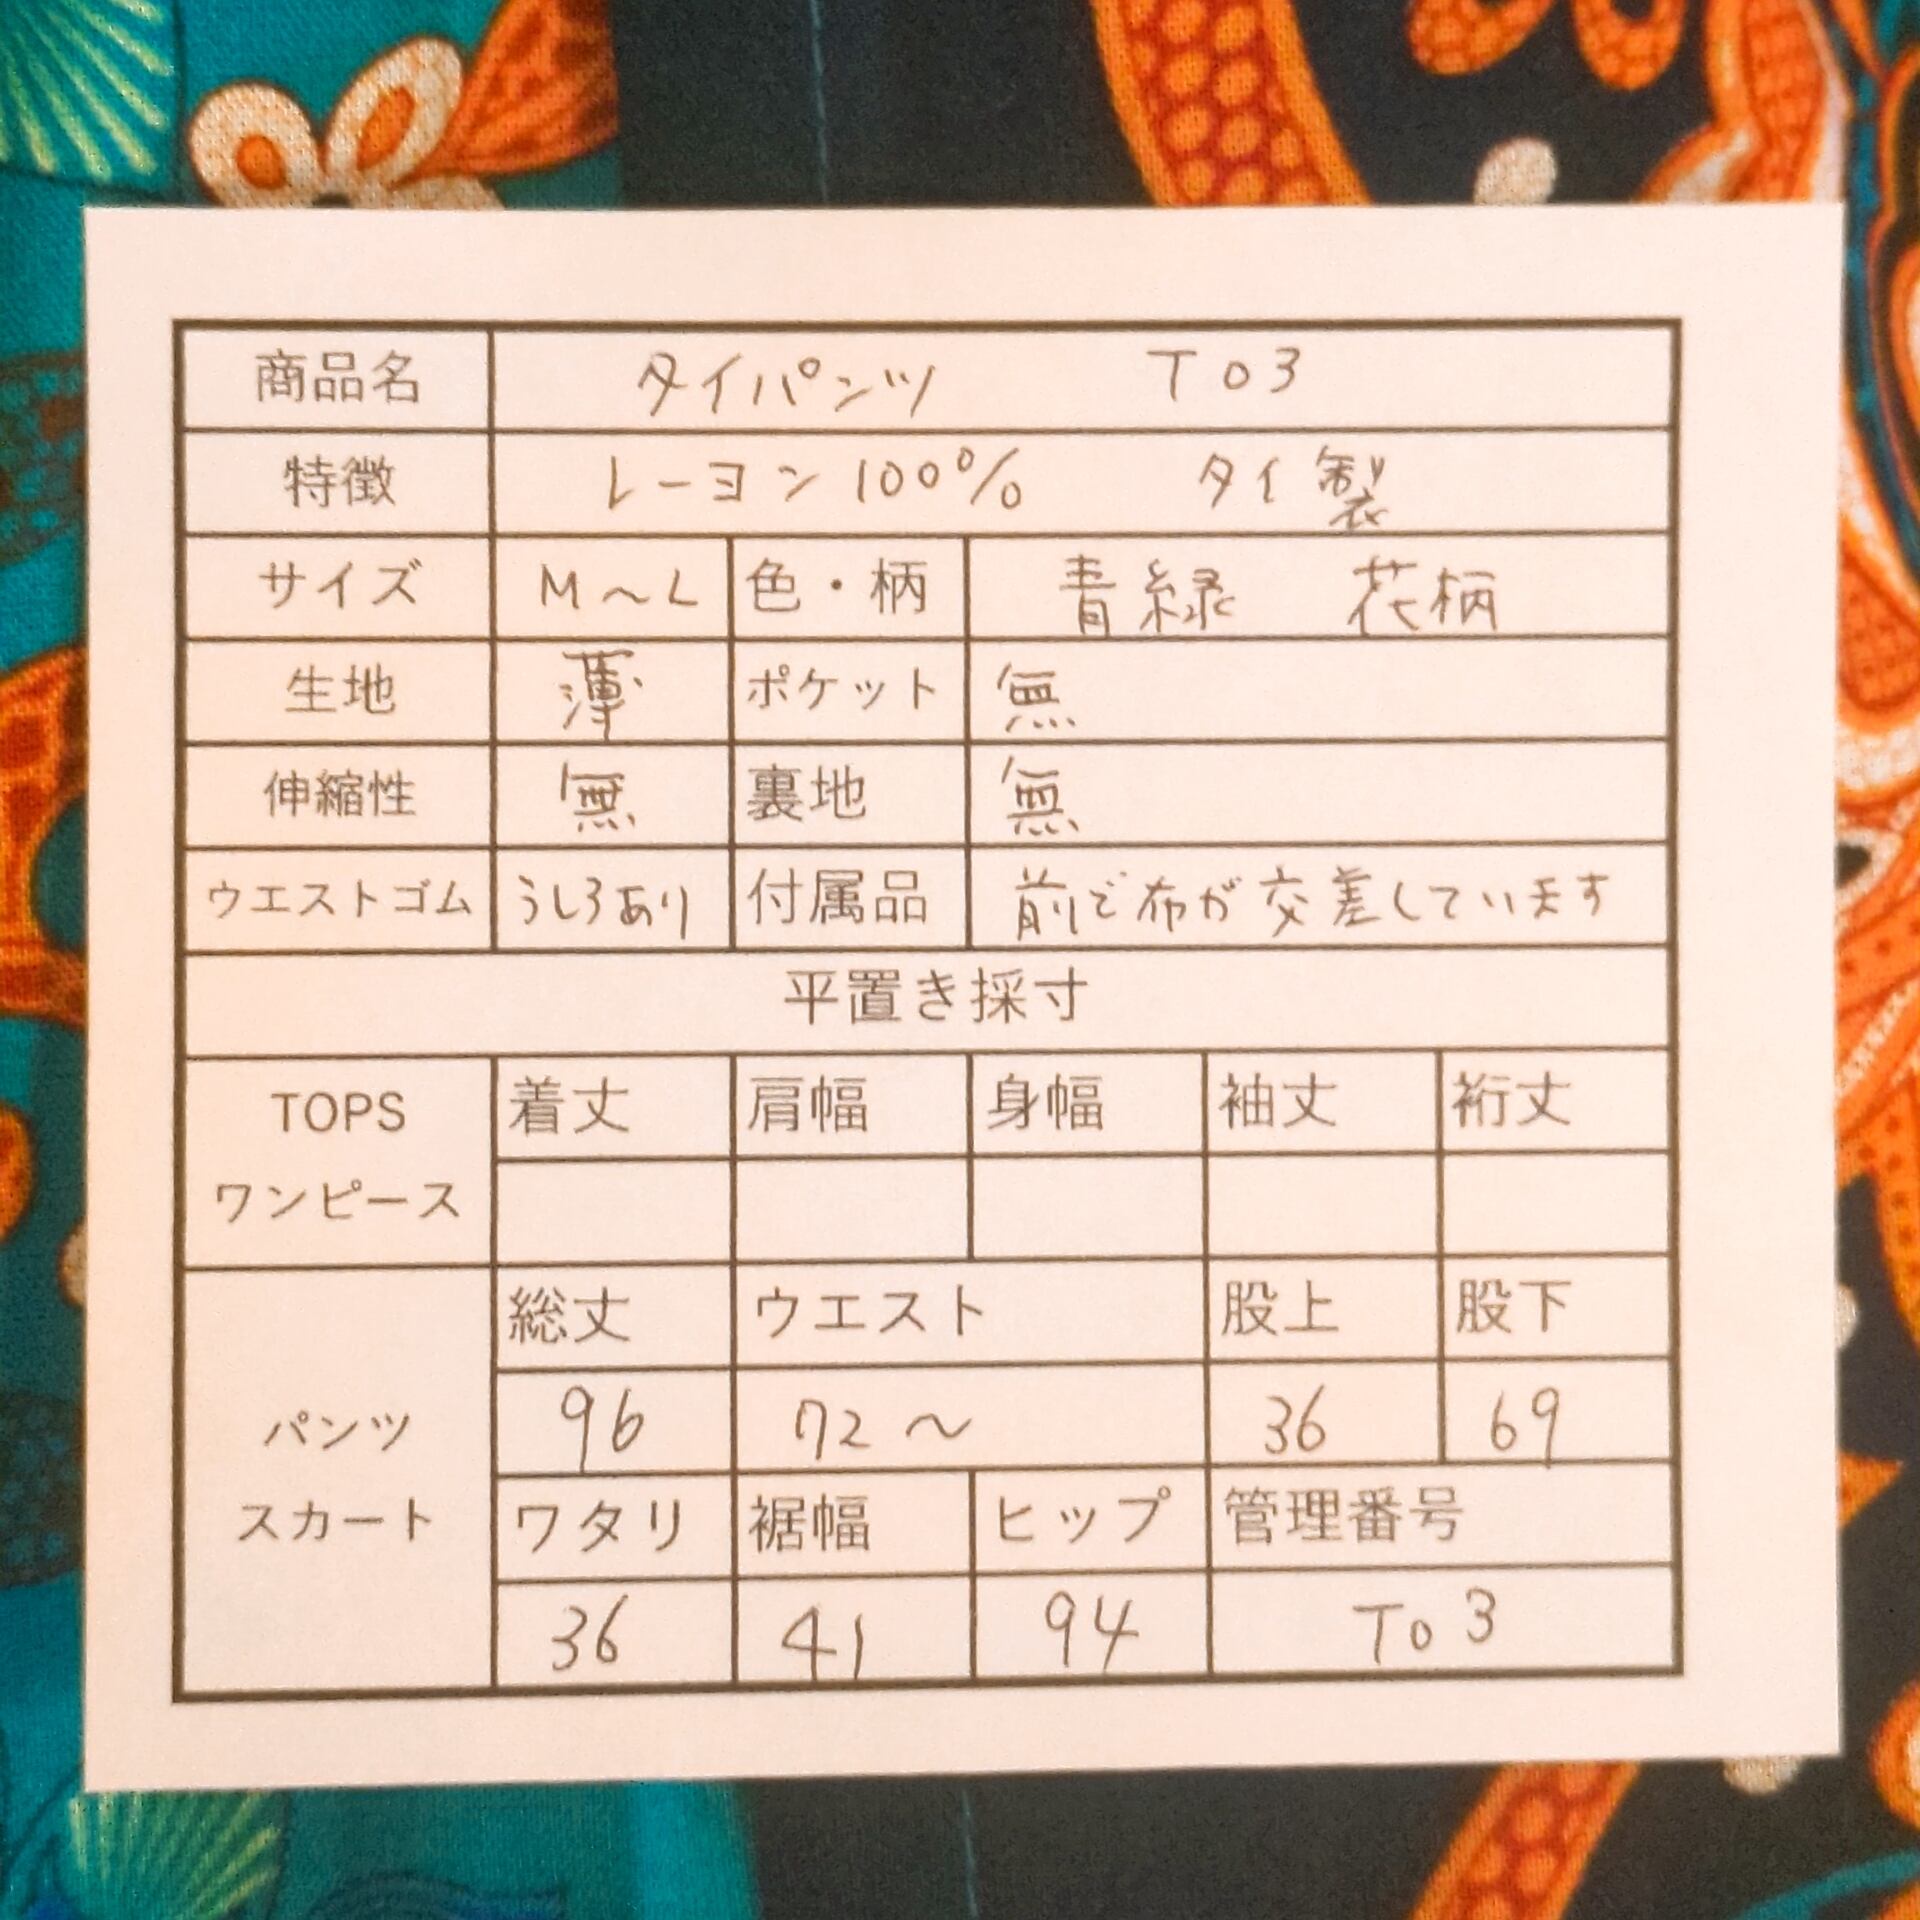 商品名 タイパンツ T03
特徴 レーヨン100% タイ製
サイズ M〜L 色・柄 青緑 花柄
生地 薄 ポケット 無
伸縮性 無 裏地 無
ウエストゴム うしろあり 付属品 前で布が交差しています
平置き採寸
TOPS ワンピース 着丈 肩幅 身幅 袖丈 裄丈
パンツ スカート 総丈 ウエスト 股上 股下
96 72〜 36 69
ワタリ 裾幅 ヒップ 管理番号
36 41 94 T03